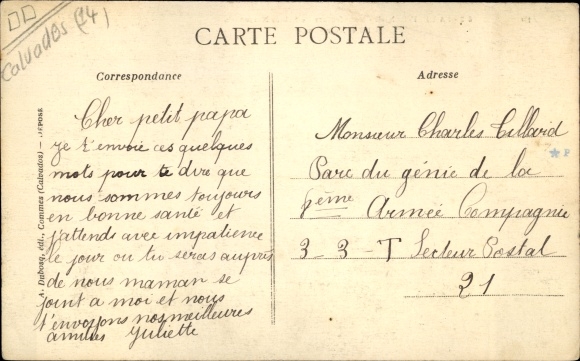 Calvados (14)
CARTE POSTALE
Correspondance
Adresse
A. Dubosq, édit., Commes (Calvados) — DÉPOSÉ
Cher petit papa
je t'envoie ces quelques
mots pour te dire que
nous sommes toujours
en bonne santé et
j'attends avec impatience
le jour ou tu seras auprès
de nous maman se
joint a moi et nous
t'envoyons nos meilleures
amitiés Juliette
Monsieur Charles Tillard
Parc du génie de la
6ème Armée Compagnie
3 - 3 - T Secteur Postal
21